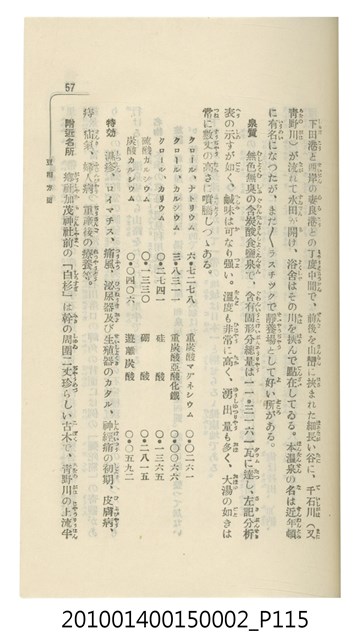 57
豆相方面
下田港と西海の奈良港との丁度中間で、前後を山嶺に挾まれた細長い谷に、千石川（又
青野川）が流れて水田も開け、浴舍はその川を挾んで點在してゐる。本溫泉の名は近年頓
に有名になつたが、まだ〱ラスチツクで靜養場として好い所がある。
泉質 無色無臭の含炭酸食鹽泉で、含有固形分總量は一一・三一六一瓦に達し、左記分析
表の示すが如く、鹹味は可なり强い。溫度も非常に高く、湧出量も多く、大湯の如きは
常に數丈の高さに噴騰しつゝある。
クロール・ナトリウム 六・七二七八 重炭酸マグネシウム 〇・〇二六一
クロール・カルシウム 三・八三一一 重炭酸亞酸化鐵 〇・〇〇〇六
クロール・カリウム 〇・二七四一 硅酸 〇・一三六五
硫酸カルシウム 〇・一三三〇 硼酸 〇・二八一五
炭酸カルシウム 〇・〇四〇六 遊離炭酸 〇・〇五九二
特効 濕疹、ロイマチス、痛風、泌尿器及び生殖器のカタル、神經痛の初期、皮膚病、
痔、疝氣、婦人病、重病後の療養等。
附近名所 總社加茂神社前の「白杉」は幹の周圍二丈珍らしい古木で、靑野川の上流半
201001400150002_P115